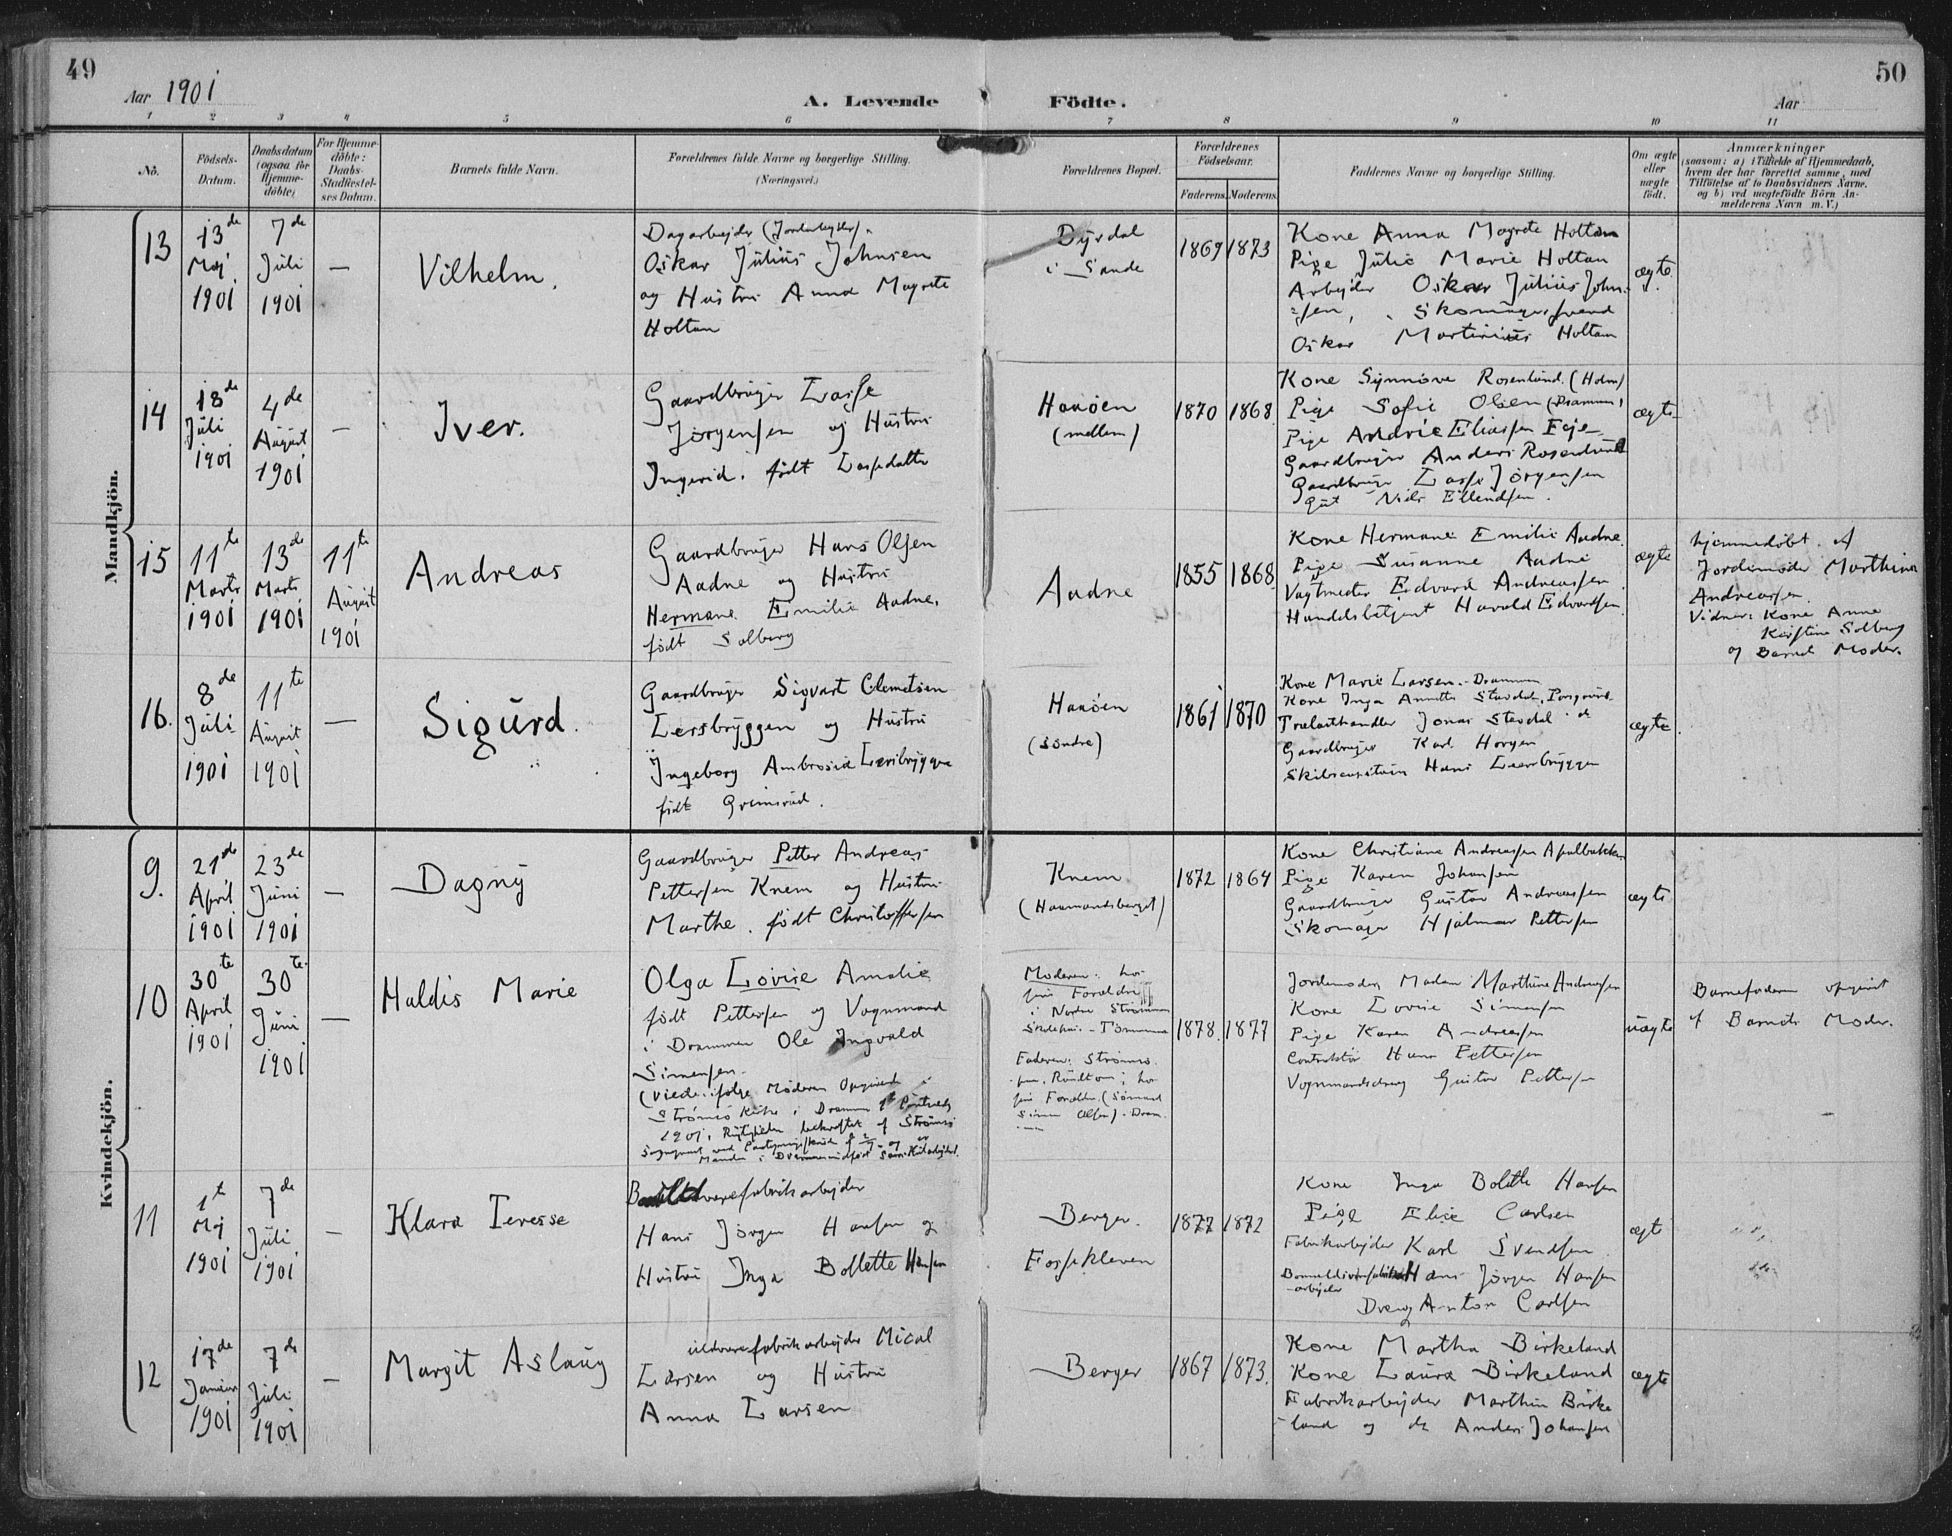 49
50
Aar 1901
A. Levende
Födte.
Aar
1 2 3 4 5 6 7 8 9 10 11
No.
Födsels-
Datum.
Daabsdatum
(ogsaa for
Hjemme-
döbte)
For Hjemme-
döbte:
Daabs-
Stadfæstel-
ses Datum.
Barnets fulde Navn.
Forældrenes fulde Navne og borgerlige Stilling.
(Næringsvei.)
Forældrenes Bopæl.
Forældrenes
Födselsaar.
Faderens. Moderens.
Faddernes Navne og borgerlige Stilling.
Om ægte
eller
uægte
födt.
Anmærkninger
(saasom: a) i Tilfælde af Hjemmedaab,
hvem der har forrettet samme, med
Tilföielse af to Daabsvidners Navne.
og b) ved uægtefödte Börn An-
melderens Navn m. V.)
Mandkjön.
13
13de
Maj
1901
7de
Juli
1901
—
Vilhelm.
Dagarbejder
Oskar Julius Johnsen
og Hustru Anna Magrete
Holtan
Dyrdal
i Sande
1869 1873
Kone Anna Magrete Holtan
Pige Julie Marie Holtan
Arbejder Oskar Julius John-
=sen, Skomagersvend
Oskar Martinius Holtan
ægte
14
18de
Juli
1901
4de
August
1901
—
Iver.
Gaardbruger Lasse
Jørgensen og Hustru
Ingerid. født Lassedatter
Haaøen
(mellem)
1870 1868
Kone Synnøve Rosenlund. (Holm)
Pige Sofie Olsen (Drammen)
Pige Eliassen Eje
Gaardbruger Anders Rosenlund
Gaardbruger Lasse Jørgensen
Gut Niels Ellendsen.
ægte
15
11te
Marts
1901
13de
Marts
1901
11te
August
1901
Andreas
Gaardbruger Hans Olsen
Aadne og Hustru
Hermane Emilie Aadne.
født Solberg
Aadne
1855 1868
Kone Hermane Emilie Aadne.
Pige Susanne Aadne
Vagtmester Edvard Andreassen
Handelsbetjent Harald Edvardsen.
ægte
hjemmedøbt af
Jordemoder Marthine
Andreassen.
Vidner: Kone Anne
Kristine Solberg
og Barnets Moder.
16.
8de
Juli
1901
11te
August
1901
—
Sigurd.
Gaardbruger Sigvart Clemetsen
Lersbryggen og Hustru
Ingeborg Ambrosia Lersbryggen
født Grimsrud.
Haaøen
(søndre)
1861 1870
Kone Marie Larsen. Drammen
Kone Inga Annette Stavdal, Porsgrund
Trælasthandler Jonas Stavdal
Gaardbruger Karl Horgen
Skibscaptain Hans Lersbryggen
ægte.
Kvindekjön.
9.
21de
April
1901
23de
Juni
1901
—
Dagny
Gaardbruger Petter Andreas
Pettersen Knem og Hustru
Marthe. født Christoffersen
Knem
(Haamandsberget)
1872 1864
Kone Christiane Andreassen Apalbakken
Pige Karen Johansen
Gaardbruger Gustav Andreassen
Skomager Hjalmar Pettersen
ægte
10
30te
April
1901
30te
Juni
1901
—
Haldis Marie
Olga Lovise Amalie
født Pettersen og Vognmand
i Drammen Ole Ingvald
Simensen.
(viede ifølge Moderens Opgivende i
Strømsø Kirke i Drammen
1901. Rigtigheden bekræftet af Strømsø
Moderen: hos
sine Forældre
i Nordre Strømmen
Faderen: Strømsø.
hos
sine Forældre.
1878. 1877
Jordemoder, Madam Marthine Andreassen
Kone Lovise Simensen
Pige Karen Andreassen
Hans Pettersen
Vognmandsdreng Gustav Pettersen
uægte
Barnefaderen opgivet
af Barnets Moder.
11
1te
Maj
1901
7de
Juli
1901
—
Klara Teresse
Bomuldsvarefabrikarbejder
Hans Jørgen Hansen og
Hustru Inga Bollette Hansen
Berger.
Fossekleven
1877 1872
Kone Inga Bolette Hansen
Pige Elise Carlsen
Fabrikarbejder Karl Svendsen
Hans Jørgen Hansen
-arbejder
Dreng Anton Carlsen
ægte
12
17de
Januar
1901
7de
Juli
1901
—
Margit Aslaug
uldvarefabrikarbejder Mical
Larsen og Hustru
Anna Larsen
Berger
1867 1873.
Kone Martha Birkeland
Kone Laura Birkeland
Fabrikarbejder Marthin Birke
land og do Anders Johansen
ægte